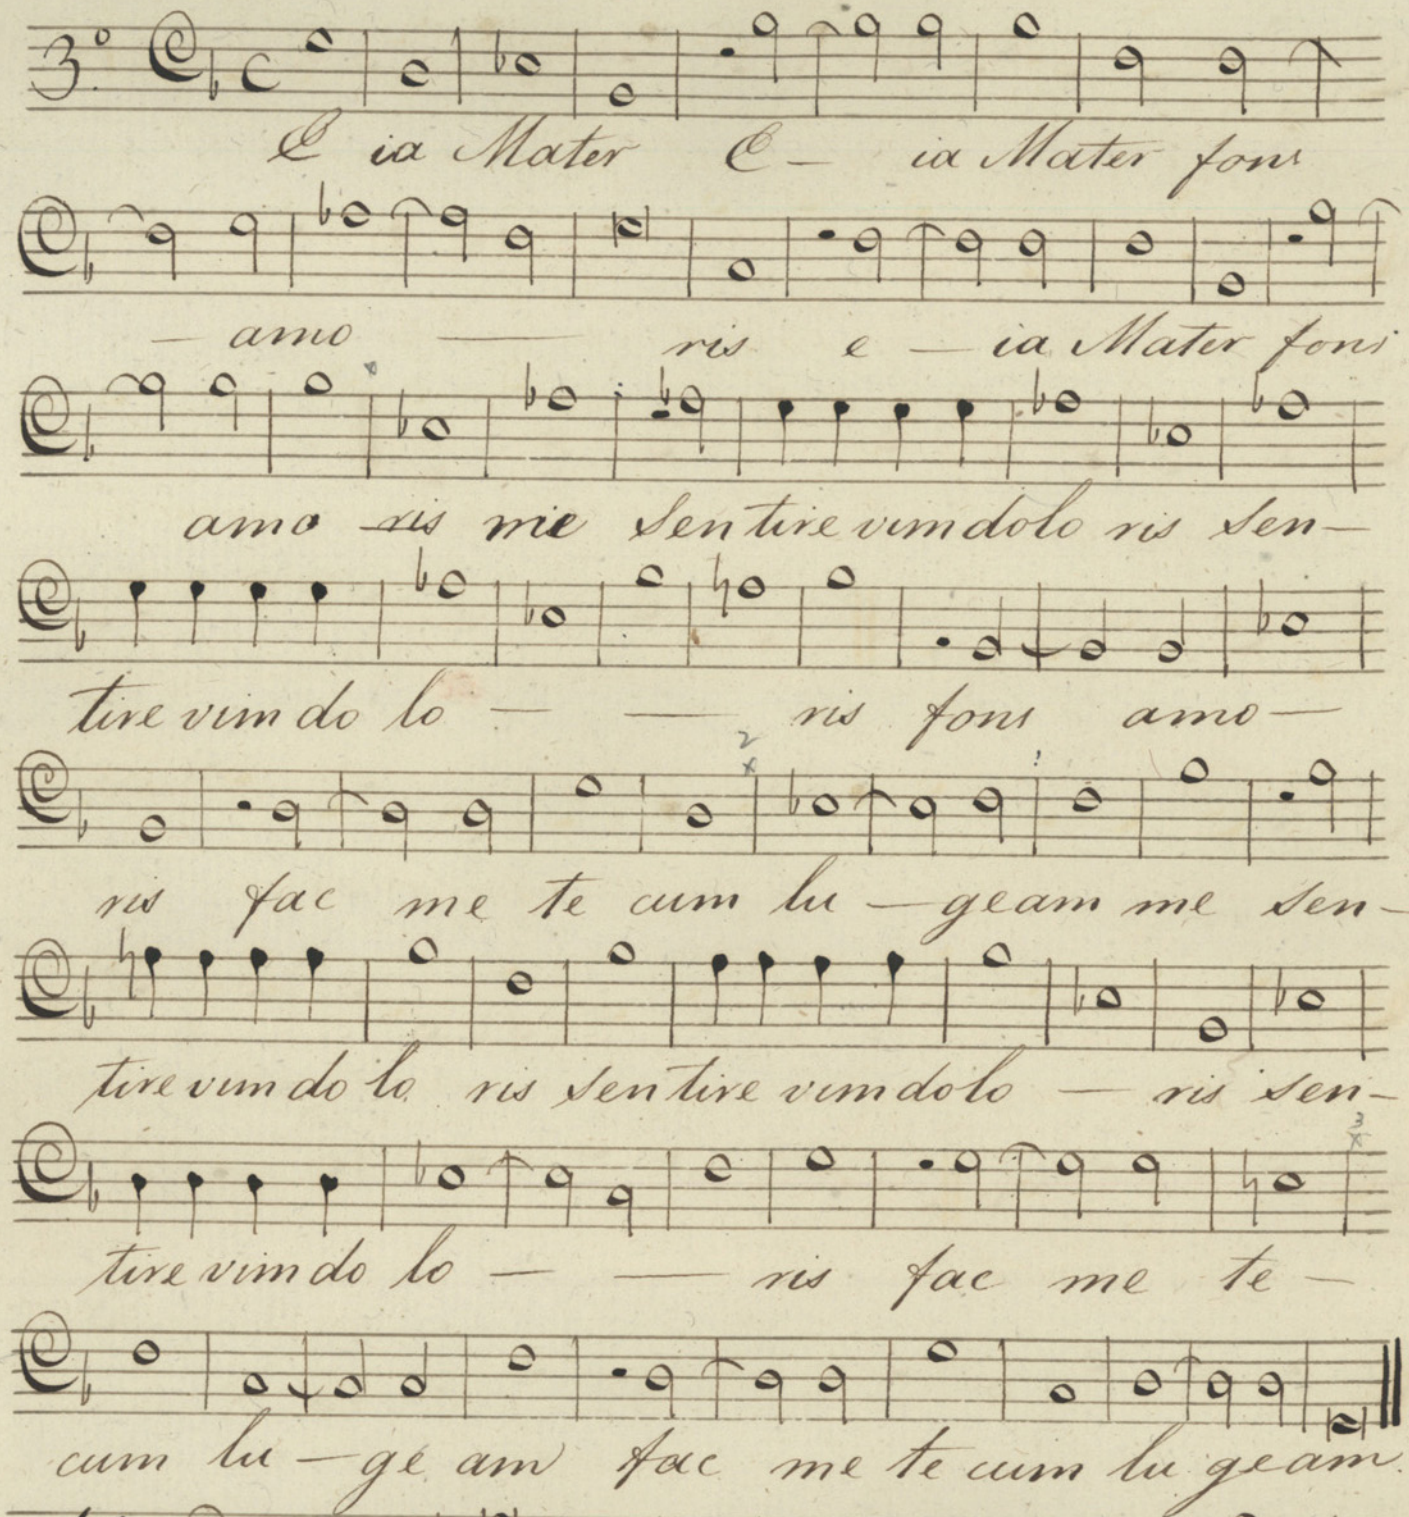 3.º C E ia Mater E – ia Mater fons
– amo — ris e – ia Mater fons
amo – ris me sentire vim dolo ris sen–
tire vim do lo — — ris fons amo –
2
x
ris fac me te cum lu – geam me sen–
tire vim do lo ris sentire vim dolo – ris sen–
3
x
tire vim do lo – — ris fac me te –
cum lu – ge am fac me te cum lu geam.